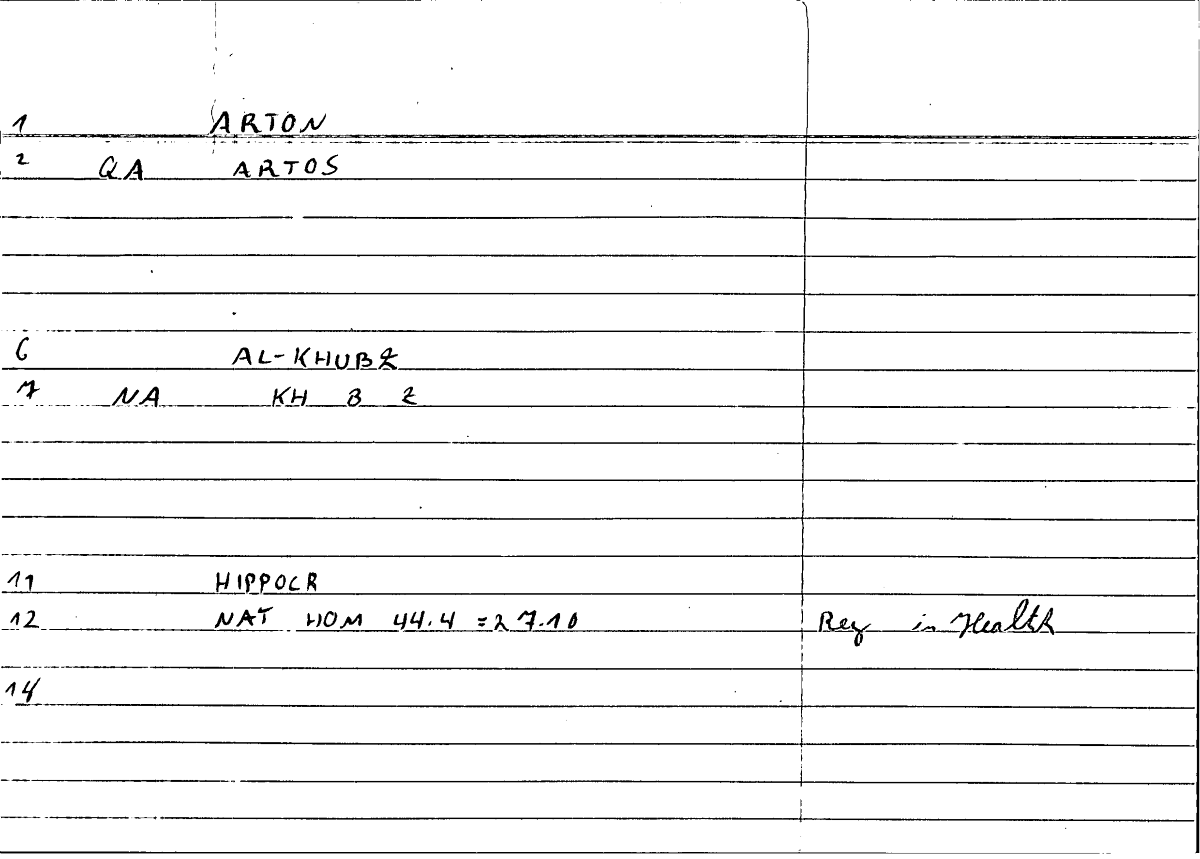 1 ARTON
2 QA ARTOS
6 AL-KHUBZ
7 NA KH B Z
11 HIPPOCR
12 NAT HOM 44.4 = 27.10 Reg in Health
14